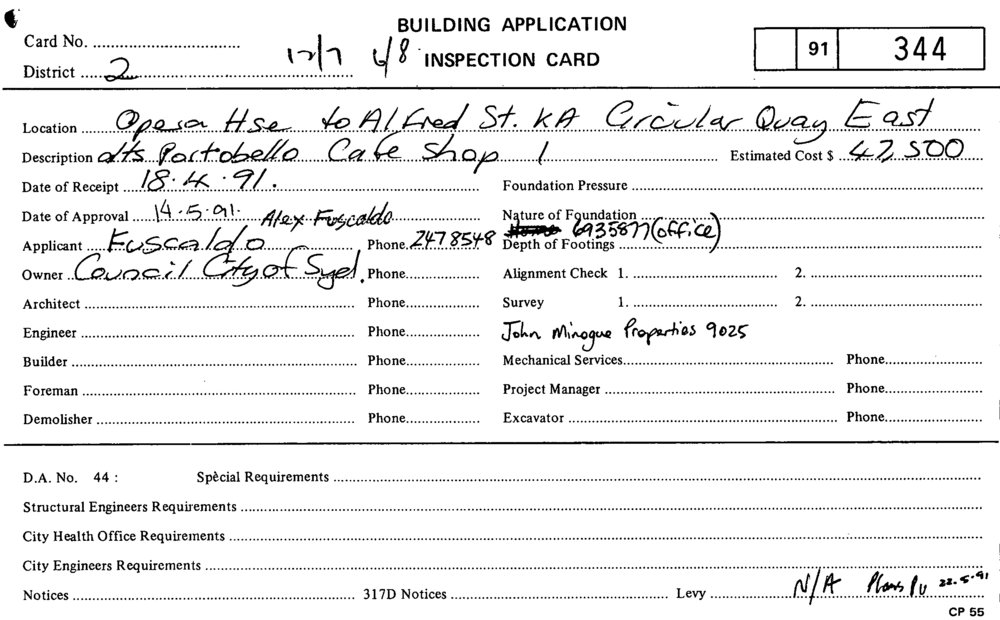 BUILDING APPLICATION
Card No.
17/7 6/8 INSPECTION CARD
91 344
District 2
Location Opera Hse to Alfred St. KA Circular Quay East
Description alts Portobello Cafe Shop 1 Estimated Cost $ 42,500
Date of Receipt 18.4.91. Foundation Pressure
Date of Approval 14.5.91. Alex Fuscaldo Nature of Foundation
6935877 (office)
Applicant Fuscaldo Phone 2478548 Depth of Footings
Owner Council City of Syd. Phone Alignment Check 1. 2.
Architect Phone Survey 1. 2.
Engineer Phone John Minogue Properties 9025
Builder Phone Mechanical Services Phone
Foreman Phone Project Manager Phone
Demolisher Phone Excavator Phone
D.A. No. 44 : Spècial Requirements
Structural Engineers Requirements
City Health Office Requirements
City Engineers Requirements
Notices 317D Notices Levy N/A Plans PU 22.5.91
CP 55